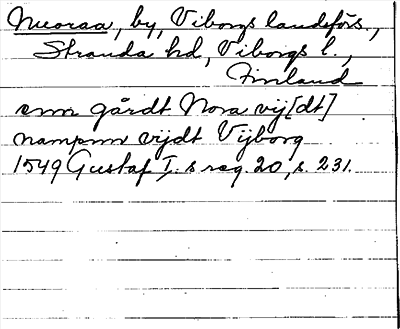 Nuoraa, by, Viborgs landsförs.,
Stranda hd, Viborgs l.,
Finland
enn gårdt Nora vij[dt]
nampnn vijdt Vijborg
1549 Gustaf I:s reg. 20, s. 231.